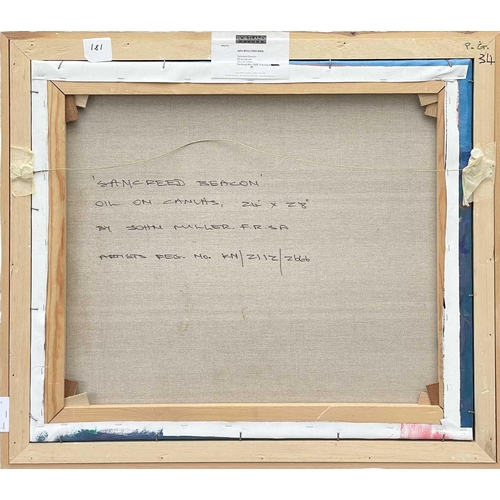 181
PORTLAND
GALLERY
P. Gr.
34
'SANCREED BEACON'
OIL ON CANVAS, 24" x 28"
BY JOHN MILLER. F.R.S.A
ARTISTS REG. NO. KN/2112/2666